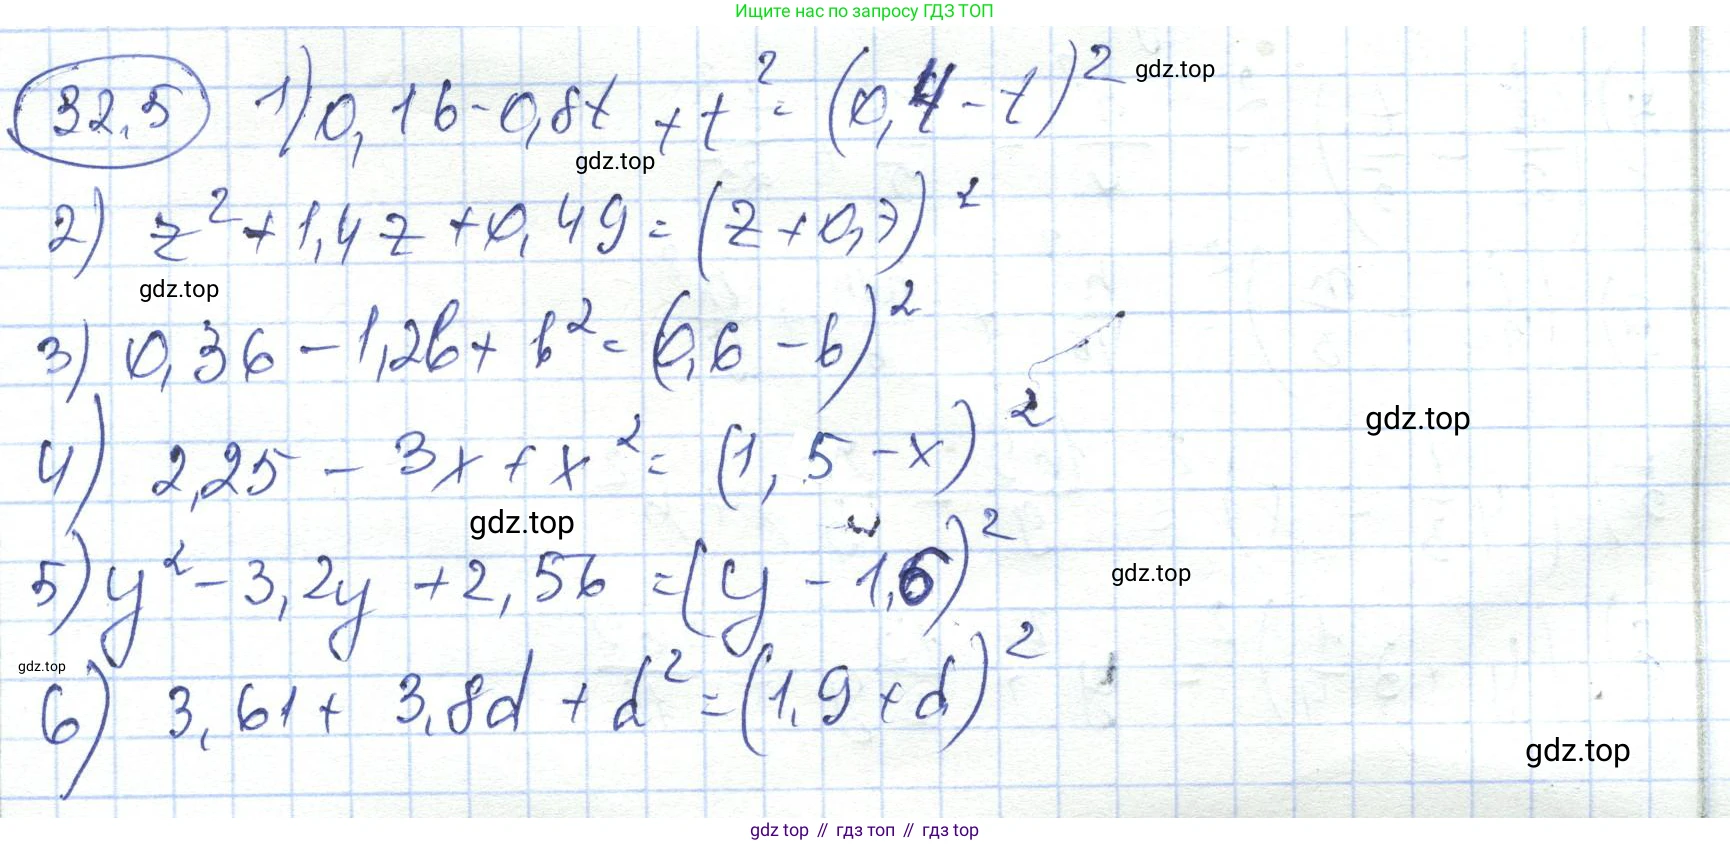 Ищите нас по запросу ГДЗ ТОП
32.5 1) 0,16 - 0,8t + t² = (0,4 - t)² gdz.top
gdz.top
2) z² + 1,4z + 0,49 = (z + 0,7)²
gdz.top
3) 0,36 - 1,2b + b² = (0,6 - b)²
gdz.top
4) 2,25 - 3x + x² = (1,5 - x)²
gdz.top
5) y² - 3,2y + 2,56 = (y - 1,6)² gdz.top
gdz.top
6) 3,61 + 3,8d + d² = (1,9 + d)²
gdz.top
gdz top // гдз топ // гдз top